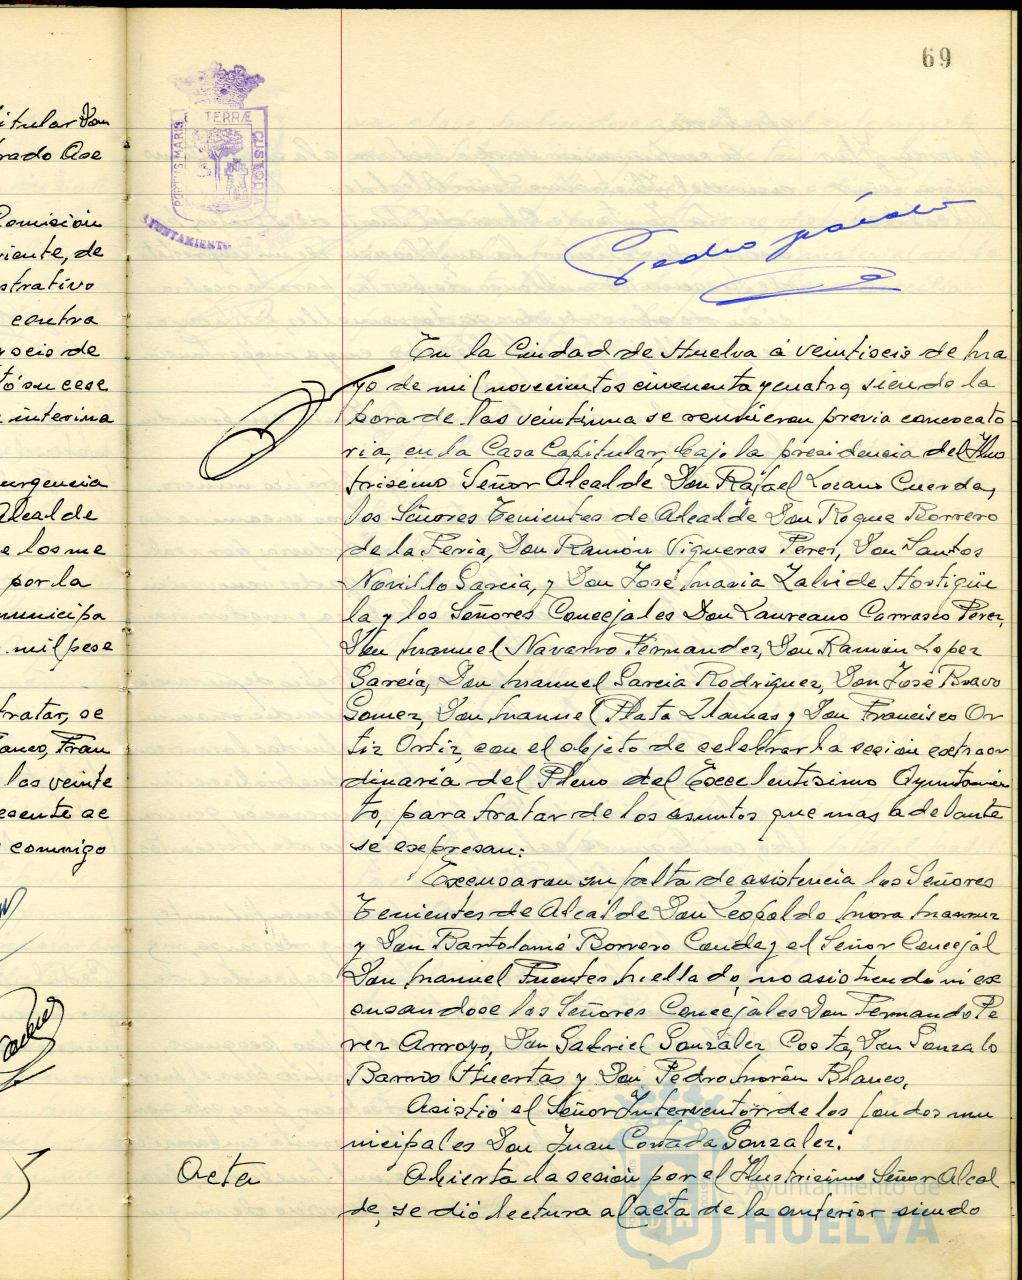 69
PORTUS MARIS
TERRÆ
CUSTODIA
AYUNTAMIENTO
itular Don
rado Ase
Comisión
viente, de
strativo
contra
rocio de
tó su cese
interina
urgencia
Alcalde
e los me
por la
municipa
mil pese
tratar, se
anco, Fran
las veinte
esente ac
conmigo
Pedro
En la Ciudad de Huelva á veintiseis de ma
yo de mil novecientos cincuenta y cuatro, siendo la
hora de las veintiuna se reunieron previa convocato
ria, en la Casa Capitular, bajo la presidencia del Ilus
trisimo Señor Alcalde Don Rafael Lozano Cuerda,
los Señores Tenientes de Alcalde Don Roque Borrero
de la Feria, Don Ramón Vigueras Perez, Don Santos
Novillo Garcia, y Don José Maria Zalvide Hortigüe
la y los Señores Concejales Don Laureano Carrasco Perez,
Don Manuel Navarro Fernandez, Don Ramón Lopez
García, Don Manuel Garcia Rodriguez, Don José Bravo
Gomez, Don Manuel Plata Llamas y Don Francisco Or
tiz Ortiz, con el objeto de celebrar la sesión extraor
dinaria del Pleno del Excelentisimo Ayuntamien
to, para tratar de los asuntos que mas adelante
se expresan:
Excusaron su falta de asistencia los Señores
Tenientes de Alcalde Don Leopoldo Mora
y Don Bartolomé Borrero Conde y el Señor Concejal
Don Manuel Fuentes Mellado, no asistiendo ni ex
cusandose los Señores Concejales Don Fernando Pe
rez Arroyo, Don Gabriel Gonzalez Costa, Don Gonzalo
Barrio Huertas y Don Pedro Morón Blanco,
Asistió el Señor Interventor de los fondos mu
nicipales Don Juan Contada Gonzalez.
Acta
Abierta la sesión por el Ilustrisimo Señor Alcal
de, se dió lectura al acta de la anterior siendo
Ayuntamiento de
HUELVA